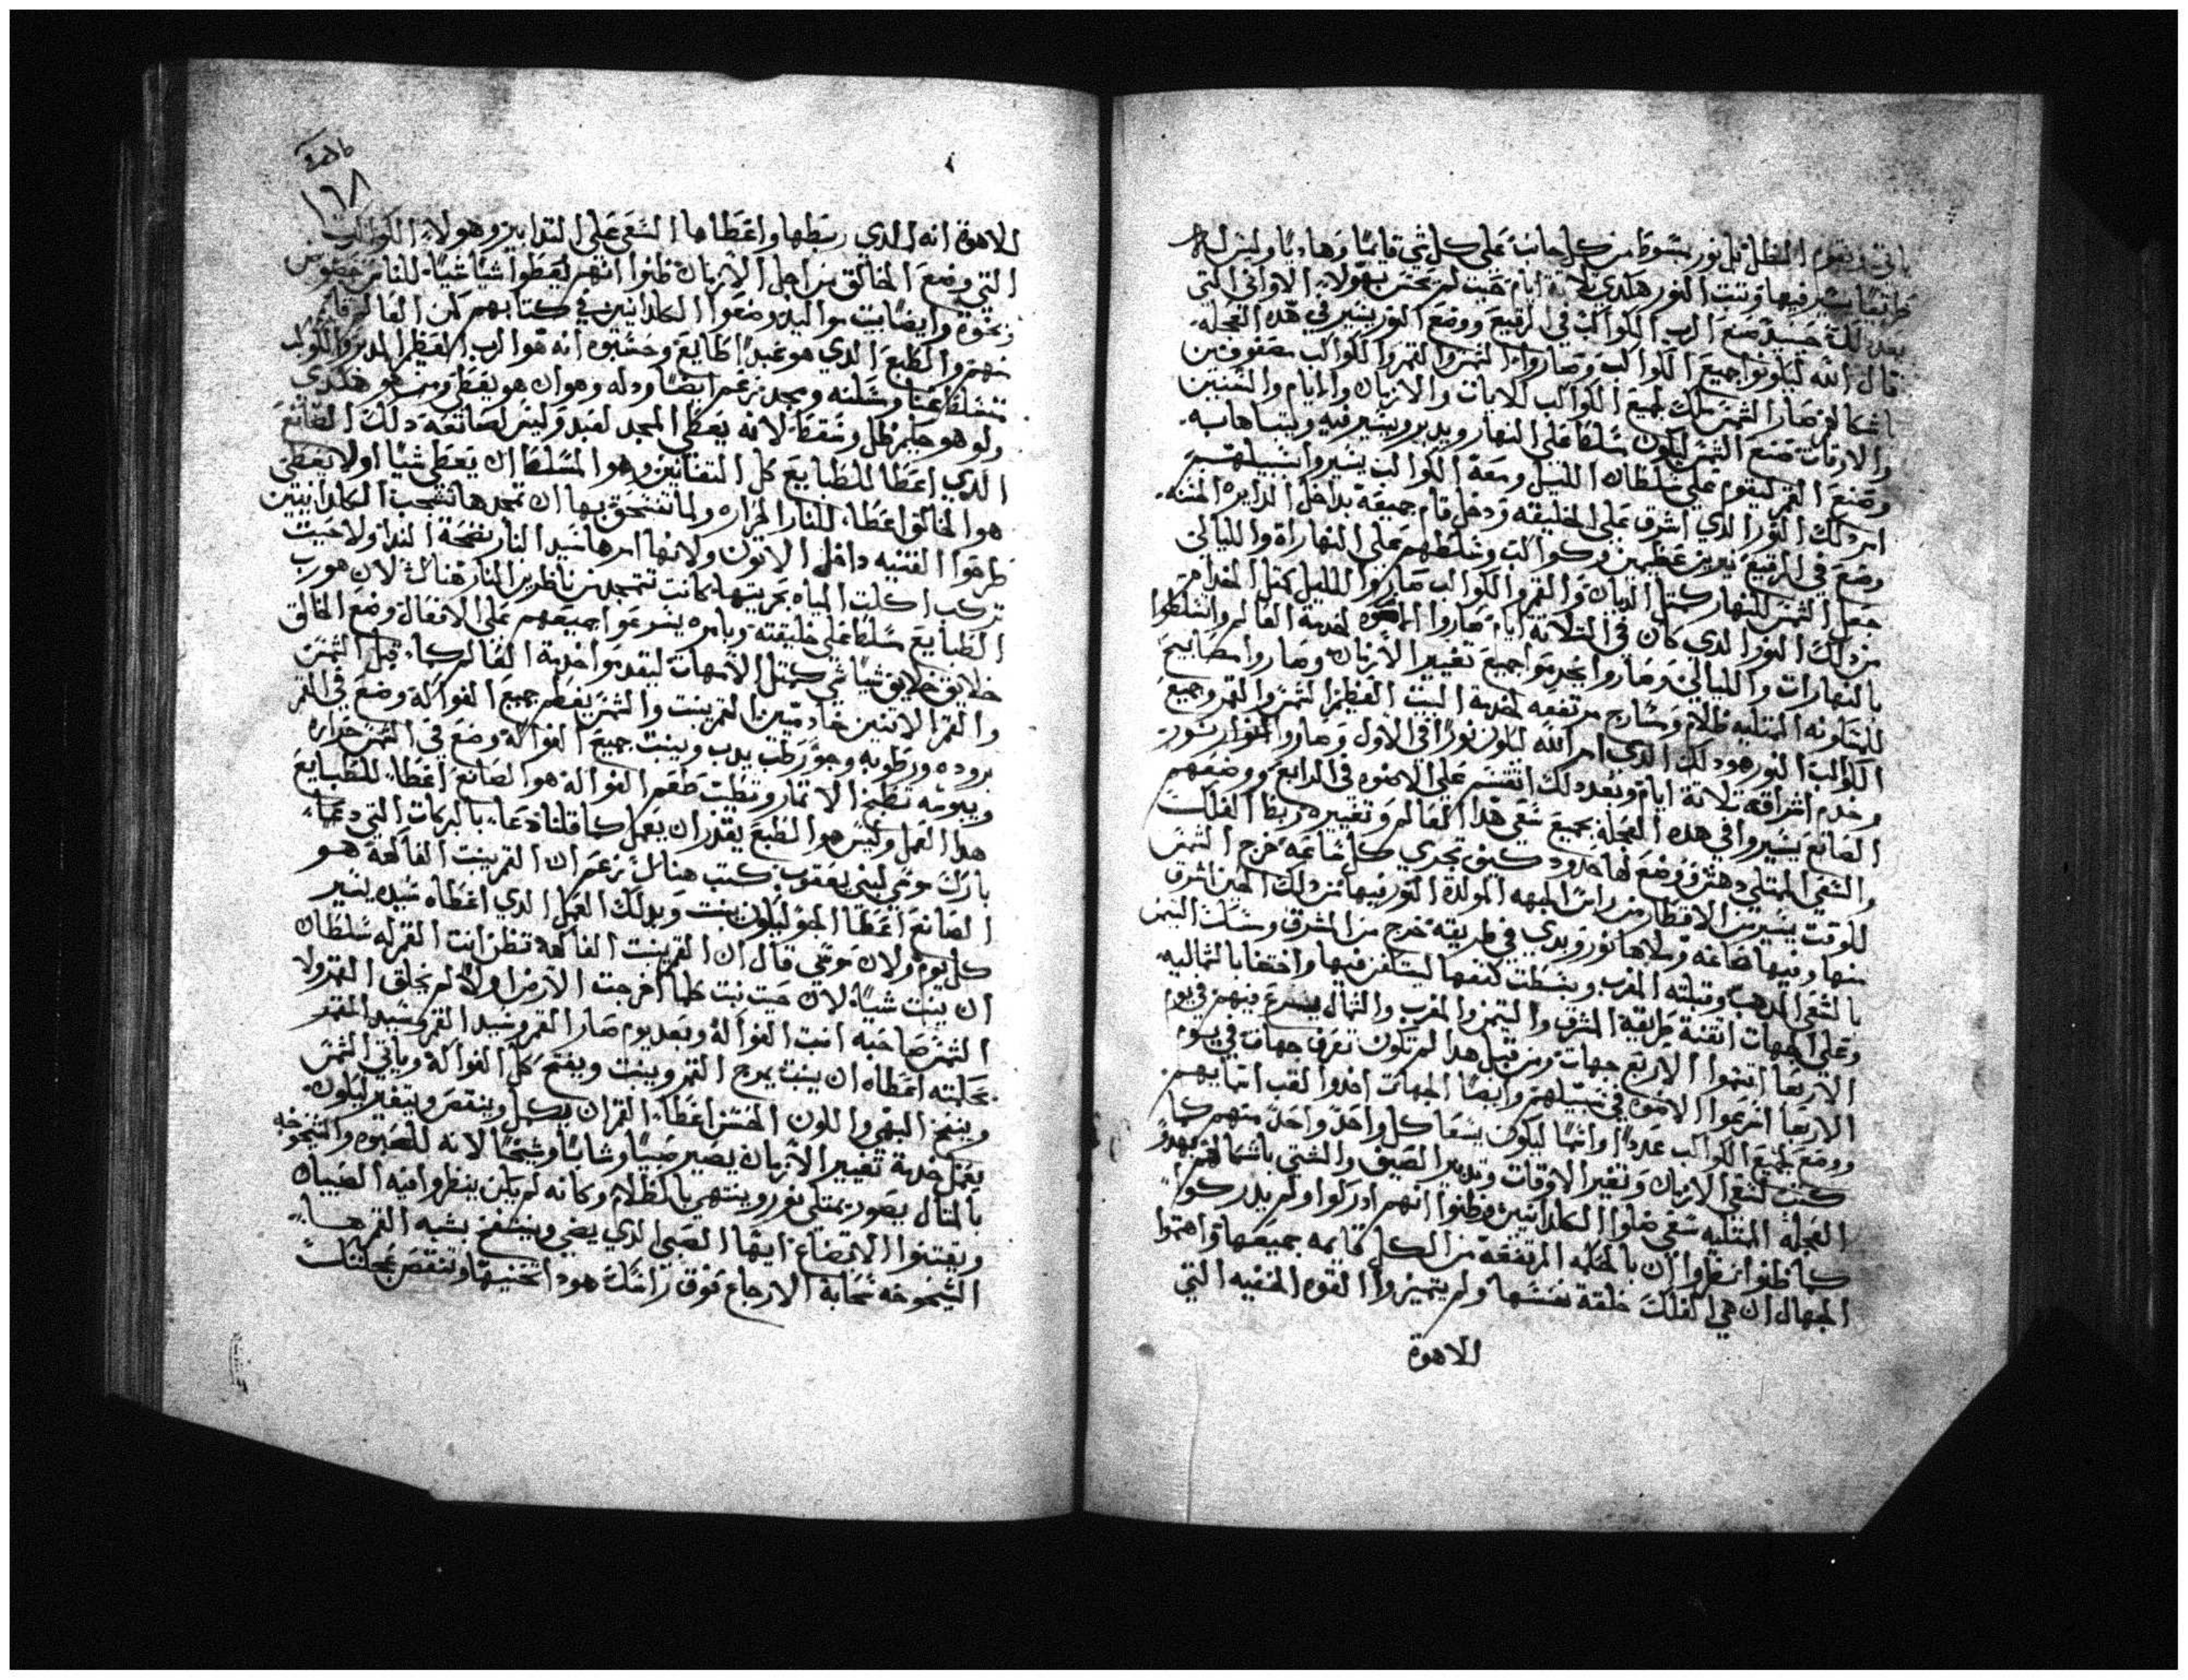 ياتي ويقوم الظل قبل نور مبسوط من كل جانب على كل شي قايمًا وهاديًا وليس له
طريقًا يسير فيها وتبت النور هكدي تلاتة ايام حيت لم يحس بهولاء الاواني التي
بعد دلك حينيد صنع الرب الكواكب في الرقيع ووضع النور يسير في هده العجله
قال الله ليكونوا جميع الكواكب وصاروا الشمس والقمر والكواكب مصفوفين
باشكالهم صار الشمس ملك لجميع الكواكب للايات والازمان والايام والسنين
والاوقات صنع الشمس ليكون سلطا على النهار ويدبر ويسير فيه وليتباها به
وصنع القمر ليقوم على سلطان الليل ومعه الكواكب يسيروا بسبيلهم
امر دلك النور الدي اشرق على الخليقه ودخل قام جميعه بداخل الدايره المتنه
وضع في الرقيع نيرين عظيمين وكواكب وسلطهم على النهاراة والليالي
جعل الشمس للنهار كمتل الديان والقمر والكواكب صاروا لليل كمتل الخدام
من دلك النور الدي كان في التلاتة ايام صاروا الاضوه لخدمة العالم واتسلطوا
بالنهارات والليالي وصاروا يخدموا جميع تغيير الازمان وصاروا مصابيح
للمتاونه الممتليه ظلام وسارج مرتفعه لخدمة البيت العظيم الشمس والقمر وجميع
الكواكب النور هو دلك الدي امر الله ليكون نورًا في الاول وصاروا الانوار بنور
وخدم اشراقه تلاتة ايام وبعد دلك اتقسم على الاضوه في الرابع ووضعهم
الصانع يسيروا في هده العجله بجميع سعي هدا العالم وتغييره ربط الفلك
والسعي الممتلي دهش ووضع لها حدود كيف تجري كل ساعه خرج الشمس
للوقت يسير من الاقطار من راس الجهه المولدة النور فيها من دلك الحين اشرق
منها وفيها صاغه وملاها نور وبدي في طريقه خرج من المشرق ومسك اليمن
بالسعي المدهب وقبلته المغرب وبسطت كنفها ليستكن فيها واختفا بالشماليه
وعلى الجهات اتقنة طريقة المشرق واليمن والمغرب والشمال يسرع فيهم في يوم
الاربعا اتتموا الاربع جهات ومن قبل هدا لم تكون تعرف جهات في يوم
الاربعا اسرعوا الاضوه في سبيلهم وايضًا الجهات اخدوا لقب اسمايهم
ووضع لجميع الكواكب عددًا واسمًا ليكون يسعا كل واحدٍ واحدٍ منهم كما
كتب لسعي الازمان وتغيير الاوقات وتدبير الصيف والشتي باشكالهم بهدو
العجله الممتليه سعي ضلوا الكلدانيين وظنوا انهم ادركوا ولم يدركوا
كما ظنوا نظروا ان بالحكمه المرتفعه من الكل قايمه جميعها واهتموا
الجهال ان هي الفلك خلقة نفسها ولم يتميزوا القوه الخفيه التي
للاهوة
ماهره
١٦٨
للاهوة انه الدي ربطها واعطاها السعي على التدابير وهولاء الكواكب
التي وضع الخالق من اجل الازمان ظنوا انهم يعطوا شيًا شيًا للناس
ونحوه وايضًا بيت مواليد وضعوا الكلدانيين في كتابهم كمن العالم قايم
منهم والطبع الدي هو عبدًا طايع وحسبوه انه هو الرب العظيم المدبر والكوكب
متسلطًا عنا وسلنه ومجد زعم ايضًا ودله وهوان هو يعطي ومن هو هكدي
ولو هو حكيم ظل وسقط لانه يعطي المجد لعبد وليس لصانعه دلك الصانع
الدي اعطا للطبايع كل التقانين وهو المسلط ان يعطي شيًا او لا يعطي
هو الخالق اعطا للنار الحراره ولما تستحق بها ان تمجدها تشجب الكلدانيين
طرحوا الفتيه داخل الاتون ولانها امرها سيد النار نضحة الندا ولا حيت
تركب اكلت المياه بحريتها كانت تتمجد من ناظرين النار هناك لان هو رب
الطبايع متسلطًا على خليقته وبامره يسرعوا جميعهم على الافعال وضع الخالق
خلايق خلايق شيًا في كمتل الامهات ليقدموا خدمة العالم كما قيل الشمس
والقمر الاتنين خادمين القمر ينبت والشمس يعظم جميع الفواكه وضع في القمر
بروده ورطوبه وجو رطب يدب وينبت جميع الفواكة وضع في الشمس حراره
ويبوسه تطبخ الاتمار وتطيب طعم الفواكه هو الصانع اعطا للطبايع
هدا العمل وليس هو الطبع يقدر ان يعمل كما قلنا دعا بالبركات التي دعا
بارك موسي لبني يعقوب كتب هناك زعم ان القمر ينبت الفاكهة هو
الصانع اعطا الجو ليكون ينبت وبدلك العمل الدي اعطاه سيده يسير
كل يوم ولان موسي قال ان القمر ينبت الفاكهة تظن انت القمر له سلطان
ان ينبت شيًا لان حيت نبت كلما اخرجت الارض اولًا لم يخلق القمر ولا
الشمس صاحبه انبت الفواكة وبعد يوم صار القمر وسيد القمر سيد القمر
بحكمته اعطاه ان ينبت يرج التمر وينبت ويفتح كل الفواكة وياتي الشمس
وينضج البهي واللون الحسن اعطا القمر ان يكبل وينقص ويتغير ليكون
يعمل خدمة تغيير الازمان يصير صبيًا وشابًا وشيخًا لانه للصبوه والشيخوخه
بالمتال يصور يمتلي نور وينتهي بالظلام وكانه لم يكن ينظروا فيه الصبيان
ويقتنوا الاتضاع ايها الصبي الدي يضي ويتنفخ بشبه القمر هـا
الشيخوخه سحابة الارجاع فوق راسك هودا تحنيها وتنقص عجلتك